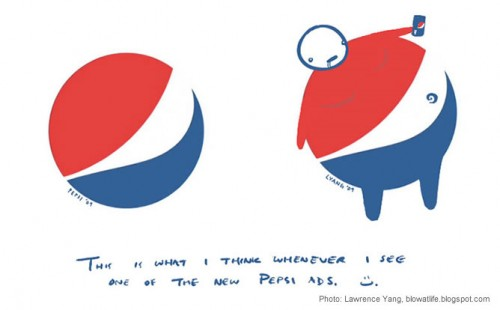 PEPSI '09
LYANG '09
THIS IS WHAT I THINK WHENEVER I SEE
ONE OF THE NEW PEPSI ADS. :)
Photo: Lawrence Yang, blowatlife.blogspot.com